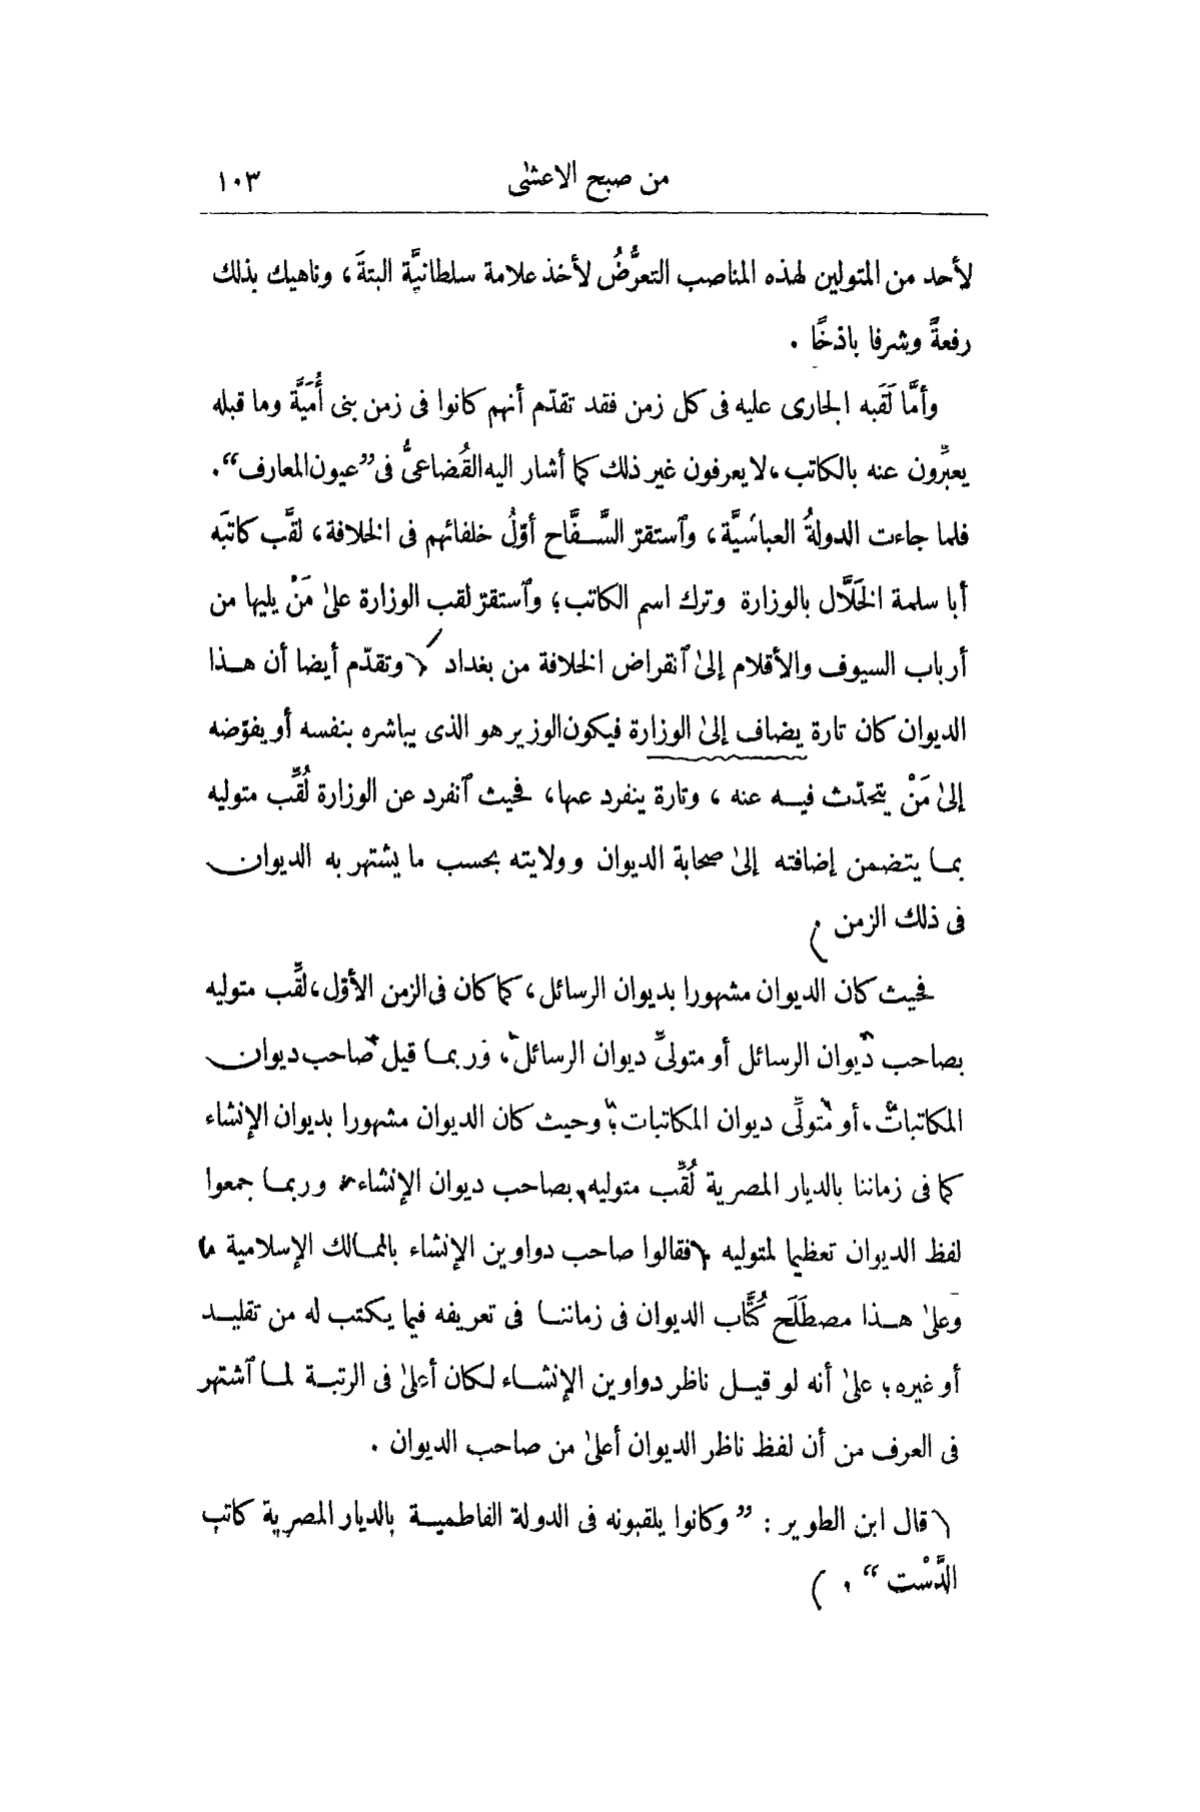 من صبح الاعشىٰ ١٠٣
لأحد من المتولين لهذه المناصب التعرُّضُ لأخذ علامة سلطانيَّة البتةَ، وناهيك بذلك
رفعةً وشرفا باذخًا .
وأمَّا لَقَبه الجارى عليه فى كل زمن فقد تقدّم أنهم كانوا فى زمن بنى أُمَيَّة وما قبله
يعبِّرون عنه بالكاتب، لا يعرفون غير ذلك كما أشار اليه القُضاعىُّ فى ”عيون المعارف“.
فلما جاءت الدولةُ العباسيَّة، وٱستقرّ السَّفَّاح أوّلُ خلفائهم فى الخلافة، لقَّب كاتبَه
أبا سلمة الخَلَّال بالوزارة وترك اسم الكاتب؛ وٱستقرّ لقب الوزارة علىٰ مَنْ يليها من
أرباب السيوف والأقلام إلىٰ ٱنقراض الخلافة من بغداد وتقدّم أيضا أن هـذا
الديوان كان تارة يضاف إلىٰ الوزارة فيكون الوزير هو الذى يباشره بنفسه أو يفوّضه
إلىٰ مَنْ يتحدّث فيـه عنه ، وتارة ينفرد عنها، فحيث ٱنفرد عن الوزارة لُقِّب متوليه
بمـا يتضمن إضافته إلىٰ صحابة الديوان وولايته بحسب ما يشتهر به الديوان
فى ذلك الزمن .
فحيث كان الديوان مشهورا بديوان الرسائل، كما كان فى الزمن الأوّل، لقِّب متوليه
بصاحب ديوان الرسائل أو متولىِّ ديوان الرسائل، وربمـا قيل صاحب ديوان
المكاتبات، أو متولِّى ديوان المكاتبات؛ وحيث كان الديوان مشهورا بديوان الإنشاء
كما فى زماننا بالديار المصرية لُقِّب متوليه بصاحب ديوان الإنشاء، وربمـا جمعوا
لفظ الديوان تعظيما لمتوليه فقالوا صاحب دواوين الإنشاء بالممـالك الإسلامية
وعلىٰ هـذا مصطَلَح كُتَّاب الديوان فى زماننـا فى تعريفه فيما يكتب له من تقليـد
أو غيره؛ علىٰ أنه لو قيـل ناظر دواوين الإنشـاء لكان أعلىٰ فى الرتبـة لمـا ٱشتهر
فى العرف من أن لفظ ناظر الديوان أعلىٰ من صاحب الديوان .
قال ابن الطوير : ” وكانوا يلقبونه فى الدولة الفاطميـة بالديار المصرية كاتب
الدَّسْت “ .